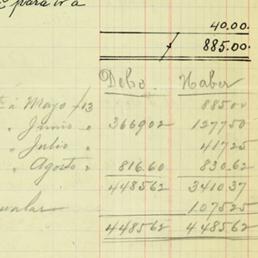 para ir a
40.00.
885.00.
Debe. Haber
a Mayo /13 88500
" Junio " 366902 127750
" Julio " 41725
" Agosto " 816.60 830.62
448562 341037
107525
448562 448562